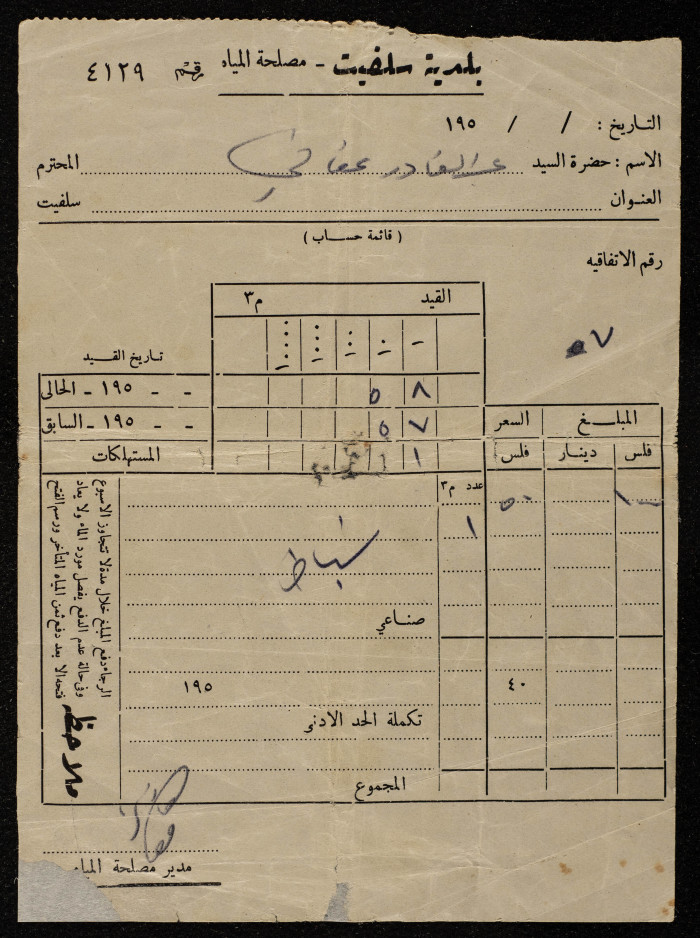 بلدية سلفيت - مصلحة المياه رقم ٤١٢٩
التاريخ : / / ١٩٥
الاسم : حضرة السيد عبد القادر عفانه المحترم
العنوان سلفيت
( قائمة حساب )
رقم الاتفاقيه
٥٧
القيد م٣
تاريخ القيد
٨ ٥ - - ١٩٥ - الحالى
٧ ٥ - - ١٩٥ - السابق
١ المستهلكات
المبلغ السعر
فلس دينار فلس عدد م٣
٥٠
١
شباط
صناعي
٤٠ ١٩٥
تكملة الحد الادنى
المجموع
ملاحظه
الرجاء دفع المبلغ خلال مدة لا تتجاوز الاسبوع
وفى حالة عدم الدفع يفصل مورد الماء ولا يعاد
فتحه الا بعد دفع ثمن المياه المتأخر ورسم الفتح
مدير مصلحة المياه